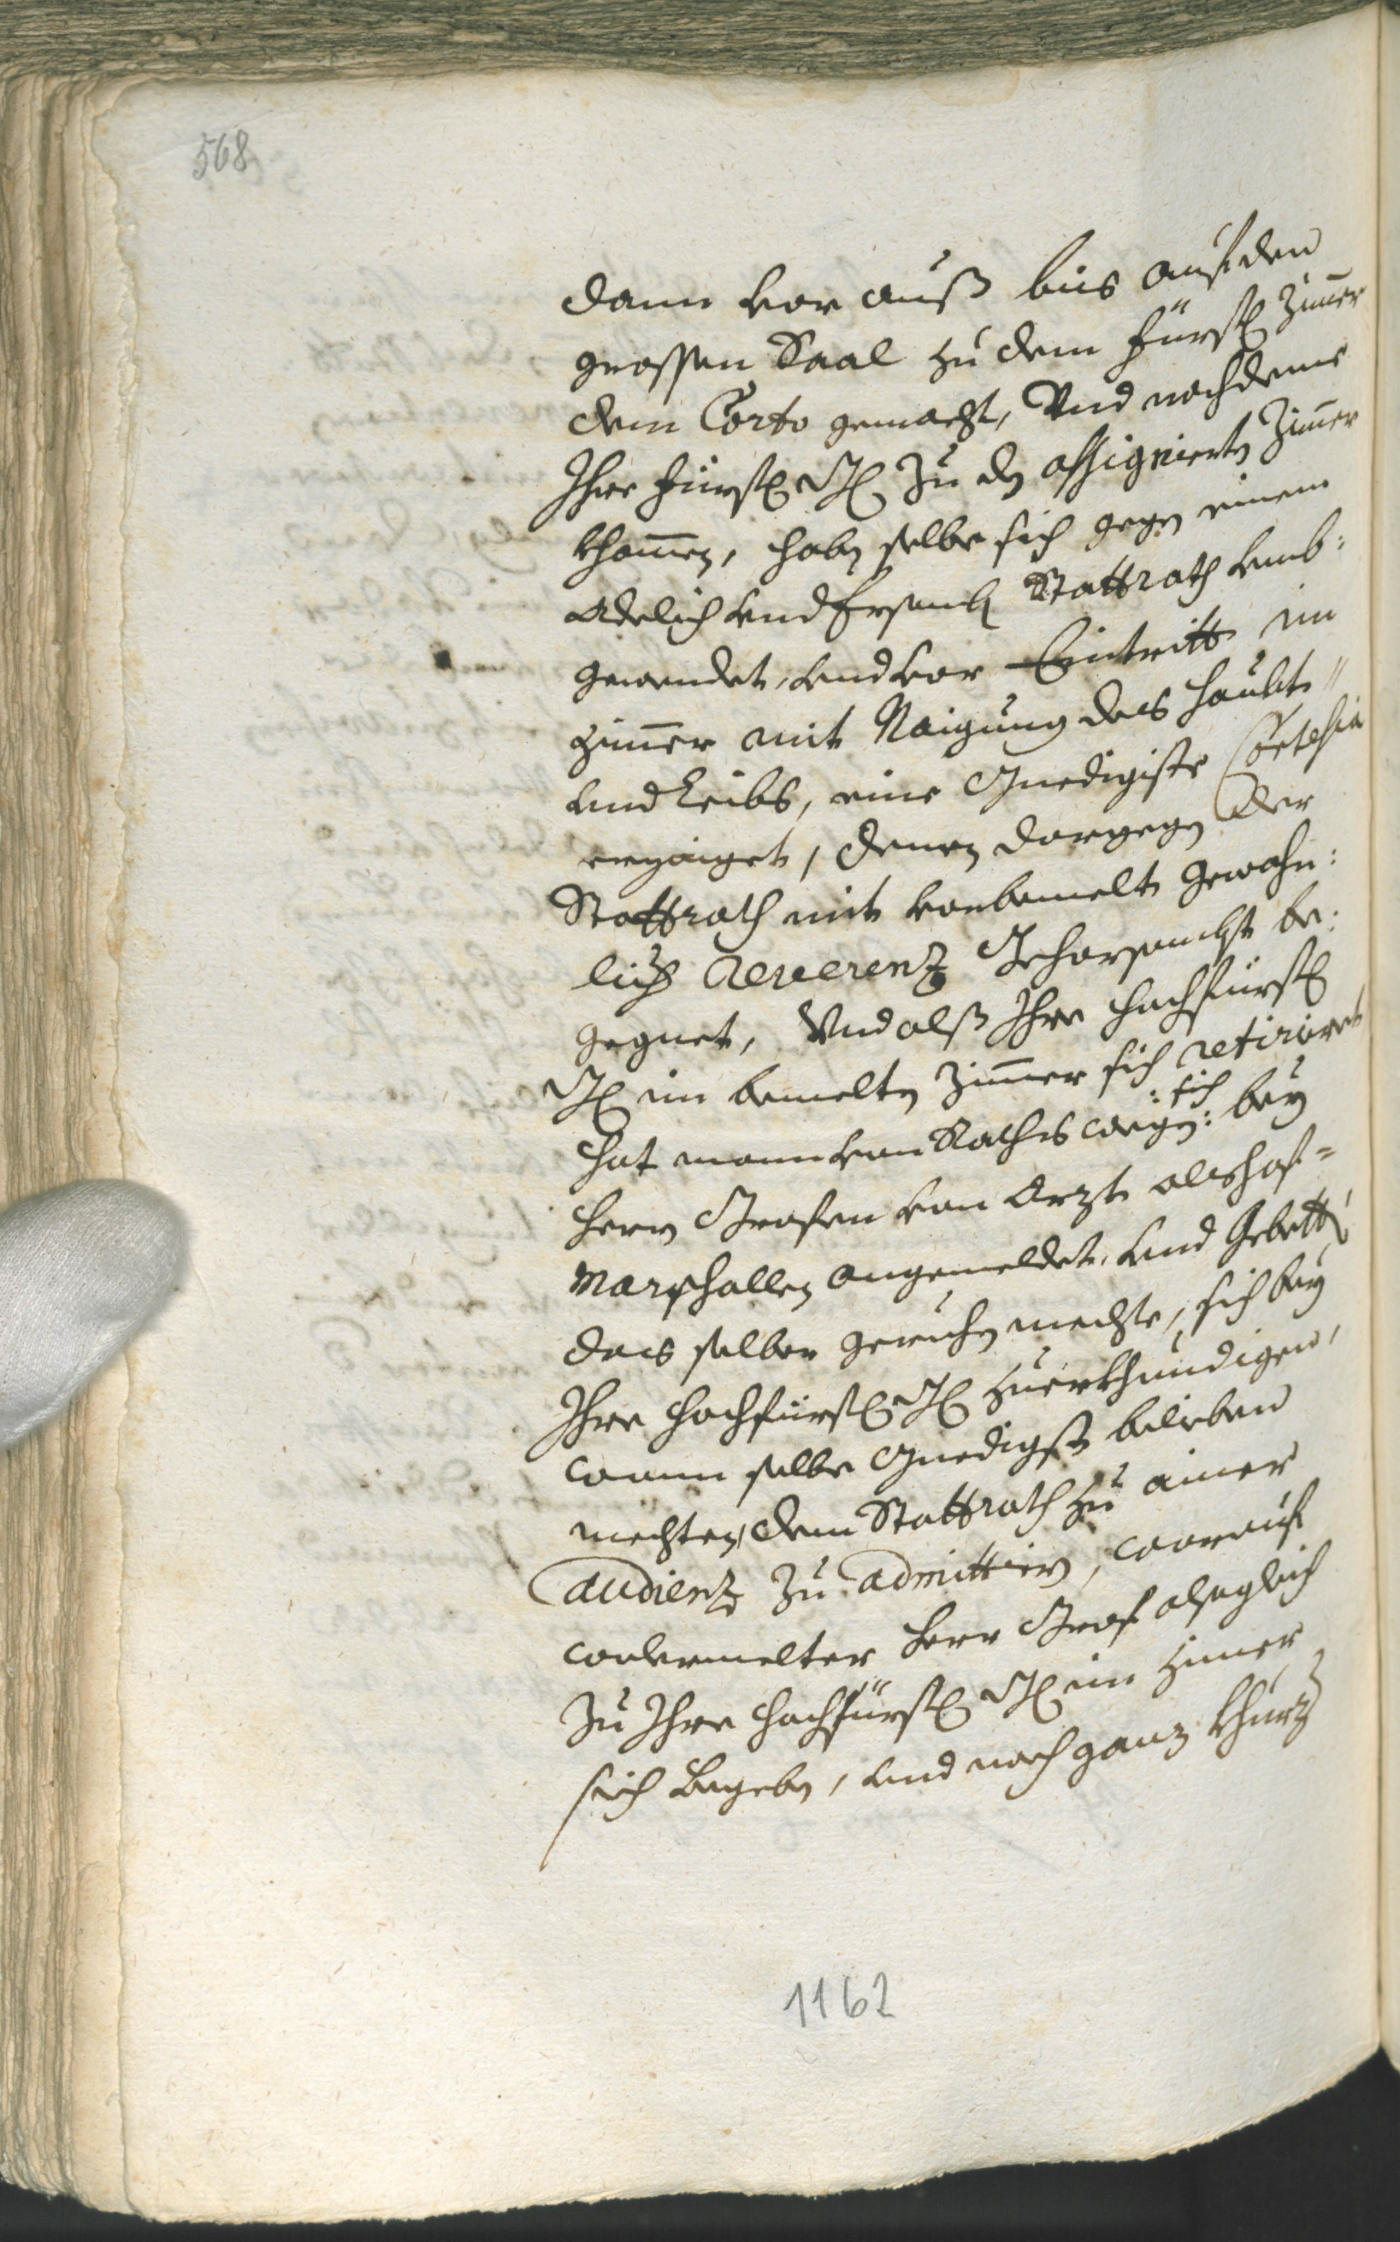 568
dann vor auß bis auf den
grossen Saal zu dem Fürstl Zimer
dem Corto gemacht, Vnd nachdeme
Ihre Fürstl Gl Zu dn assigniertn Zimer
khomen, habn selbe sich gegn einem
Adelich vnd Ersamb Stattrath vmb:
gewendet, vnd vor Eintritt im
Zimer mit Naigung des Haubt"
vnd Leibs, eine Gnedigiste Cortesia
erzaiget, Denen dargegn der
Stattrath mit vorbemelt gewohn:
lich Reverenz Gehorsambst be:
gegnet, Vnd alß Ihre Hochfürstl
Gl im bemeltn Zimer sich retiriert
hat mann von Raths wegn :sich: bey
Herrn Grafen von Arzt als Hof=
Marschallen angemeldet, vnd Gebettn
das selber geruhn mechte, sich bey
Ihre Hochfürstl Gl zu erkhundigen,
wann selbe Gnedigst belieben
mechten, dem Stattrath zu ainer
Audienz zu admittirn, worauf
wolermelter Herr Graf alsogleich
Zu Ihre Hochfürstl Gl im Zimer
sich begebn, vnd nach ganz khurz
1162